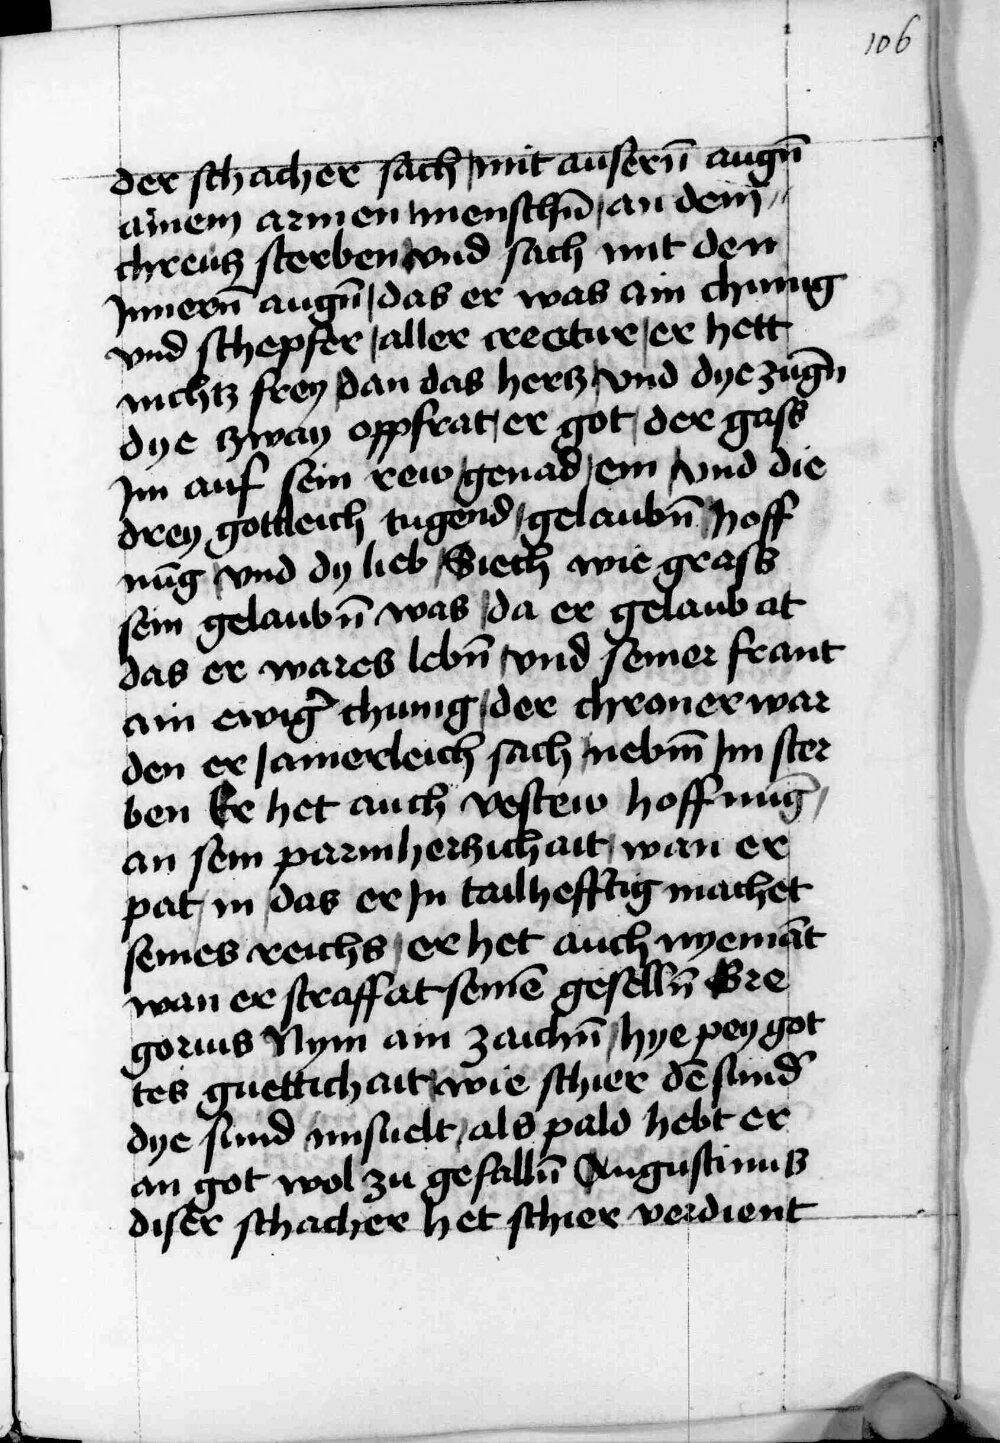 106
der schacher sach / mit ausern̄ augn̄
ainem armen menschn̄ / an dem //
chreutz sterben / vnd sach mit den
Innern̄ augn̄ / das er was ain chunig
vnd schepfer / aller creatur / er hett
nichtz frey / dan das hertz / vnd dye zūgn̄
dye tzway oppfrat / er got / der gass
Im auf sein rew / genad / ein / vnd die
drey gottleich tugend / gelaubn̄ / hoff
nūg / vnd dy lieb / Siech wie grass
sein gelaubn̄ was / da er gelaubat
das er wares lebn̄ / vnd seiner frant
ain ewigʼ chunig / der chroner war
den er Jamerleich sach / nebm̄ Im ster
ben Er het auch vestew hoffnuḡ /
an sein parmhertzichait / wan er
pat / in / das er In tailhefftig machet
seines reichs / er het auch nyemāt
wan er straffat seinē geselln̄ Gre
gorius Nym ain zaichn̄ / hye pey got
tes guettichait / wie schier dē sundʼ
dye sund missuelt / als pald hebt er
an got wol zu gefalln̄ Augustinus
diser schacher het schier verdient